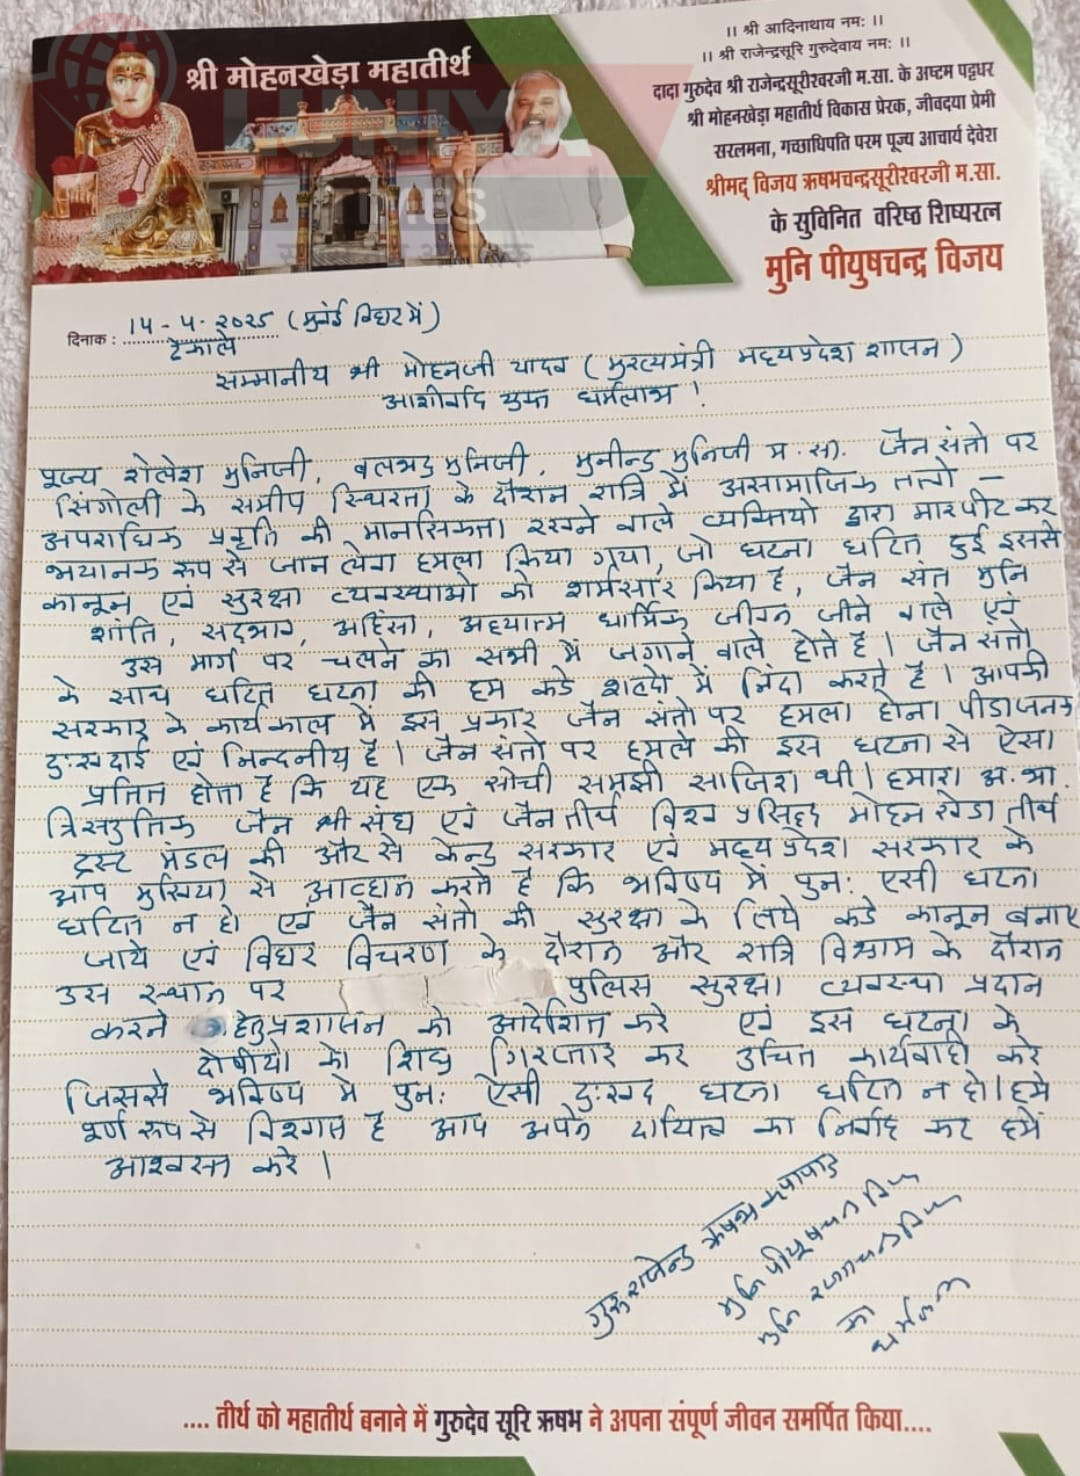 श्री मोहनखेड़ा महातीर्थ
।। श्री आदिनाथाय नमः ।।
।। श्री राजेन्द्रसूरि गुरुदेवाय नमः ।।
दादा गुरुदेव श्री राजेन्द्रसूरीश्वरजी म.सा. के अष्टम पट्टधर
श्री मोहनखेड़ा महातीर्थ विकास प्रेरक, जीवदया प्रेमी
सरलमना, गच्छाधिपति परम पूज्य आचार्य देवेश
श्रीमद् विजय ऋषभचन्द्रसूरीश्वरजी म.सा.
के सुविनित वरिष्ठ शिष्यरत्न
मुनि पीयुषचन्द्र विजय
LUNIYA
TIMES
दिनाक : 14-4-2025 (मुंबई विहार में)
टेकाले
सम्मानीय श्री मोहनजी यादव (मुख्यमंत्री मध्यप्रदेश शासन)
आशीर्वाद युक्त धर्मलाभ !
पूज्य शैलेश मुनिजी, बलभद्र मुनिजी, मुनीन्द्र मुनिजी म.सा. जैन संतो पर
सिंगोली के समीप स्थिरता के दौरान रात्रि में असामाजिक तत्वो –
अपराधिक प्रकृति की मानसिकता रखने वाले व्यक्तियो द्वारा मारपीट कर
भयानक रूप से जान लेवा हमला किया गया, जो घटना घटित हुई इससे
कानून एवं सुरक्षा व्यवस्थाओ को शर्मसार किया है, जैन संत मुनि
शांति, सद्भाव, अहिंसा, अध्यात्म धार्मिक जीवन जीने वाले एवं
उस मार्ग पर चलने का सभी में जगाने वाले होते है । जैन संतो
के साथ घटित घटना की हम कडे शब्दो में निंदा करते है । आपकी
सरकार के कार्यकाल में इस प्रकार जैन संतो पर हमला होना पीडाजनक
दुःखदाई एवं निन्दनीय है । जैन संतो पर हमले की इस घटना से ऐसा
प्रतित होता है कि यह एक सोची समझी साजिश थी । हमारा अ.भा.
त्रिस्तुतिक जैन श्री संघ एवं जैन तीर्थ विश्व प्रसिद्द मोहनखेडा तीर्थ
ट्रस्ट मंडल की और से केन्द्र सरकार एवं मध्यप्रदेश सरकार के
आप मुखिया से आव्हान करते है कि भविष्य में पुनः एसी घटना
घटित न हो एवं जैन संतो की सुरक्षा के लिये कडे कानून बनाए
जाये एवं विहार विचरण के दौरान और रात्रि विश्राम के दौरान
उस स्थान पर पुलिस सुरक्षा व्यवस्था प्रदान
करने हेतु प्रशासन को आदेशित करे एवं इस घटना के
दोषीयो को शिघ्र गिरफ्तार कर उचित कार्यवाही करे
जिससे भविष्य मे पुनः ऐसी दुःखद घटना घटित न हो । हमे
पूर्ण रूप से विश्वास है आप अपने दायित्व का निर्वाह कर हमें
आश्वस्त करे ।
गुरु राजेन्द्र ऋषभ कृपापात्र
मुनि पीयूषचन्द्र विजय
मुनि
का
धर्मलाभ
.... तीर्थ को महातीर्थ बनाने में गुरुदेव सूरि ऋषभ ने अपना संपूर्ण जीवन समर्पित किया....